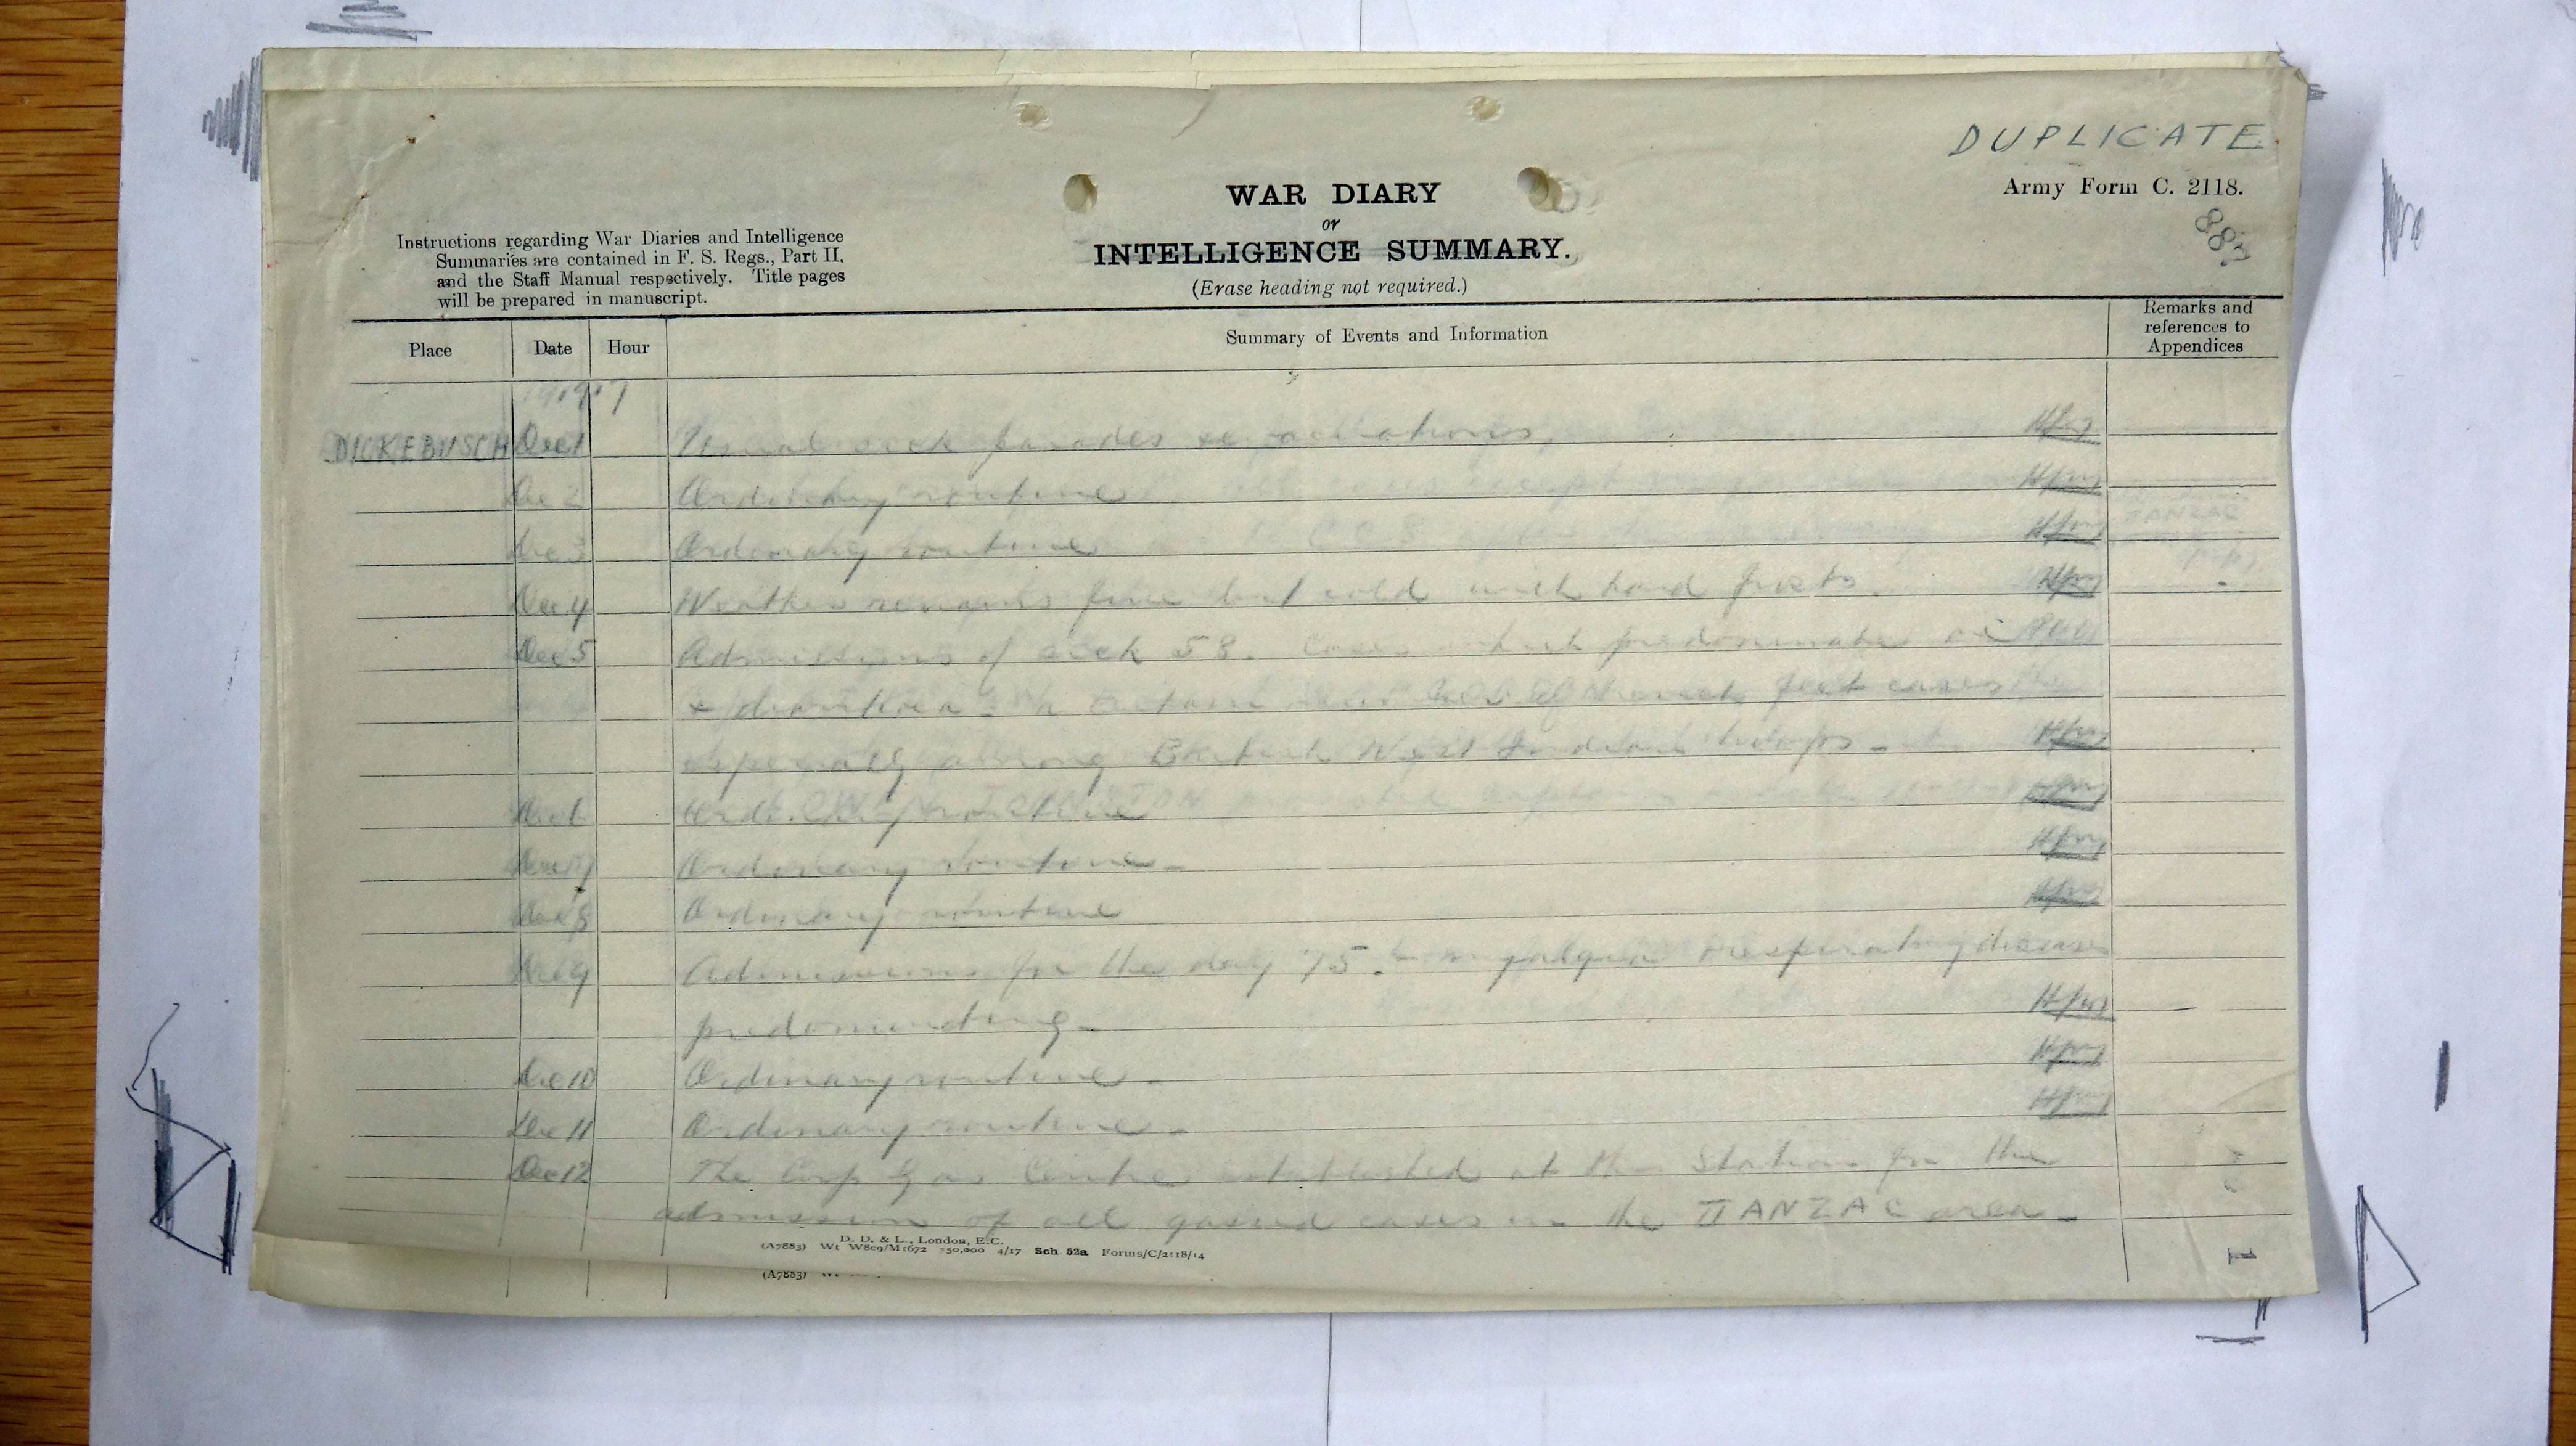 DUPLICATE
Army Form C. 2118.
WAR DIARY
or
INTELLIGENCE SUMMARY.
(Erase heading not required.)
Instructions regarding War Diaries and Intelligence
Summaries are contained in F. S. Regs., Part II.
and the Staff Manual respectively. Title pages
will be prepared in manuscript.
Place Date Hour Summary of Events and Information Remarks and
references to
Appendices
1917
DICKEBUSCH Dec 1 Usual sick parades &
Dec 2 Ordinary routine
Dec 3 Ordinary routine
Dec 4 Weather remains fine but cold with hard frosts.
Dec 5 Admissions of sick 58. Cases which predominate are
& diarrhoea - a certain number of trench feet cases
especially among British West Indian troops -
Dec 6 routine
Dec 7 Ordinary routine -
Dec 8 Ordinary routine
Dec 9 Admissions for the day 75. respiratory diseases
predominating -
Dec 10 Ordinary routine -
Dec 11 Ordinary routine -
Dec 12 The Corps Gas Centre established at this Station for the
admission of all gassed cases in the II ANZAC area -
D. D. & L., London, E.C.
(A7883) Wt W809/M1672 350,000 4/17 Sch 52a Forms/C/2118/14
(A7883)